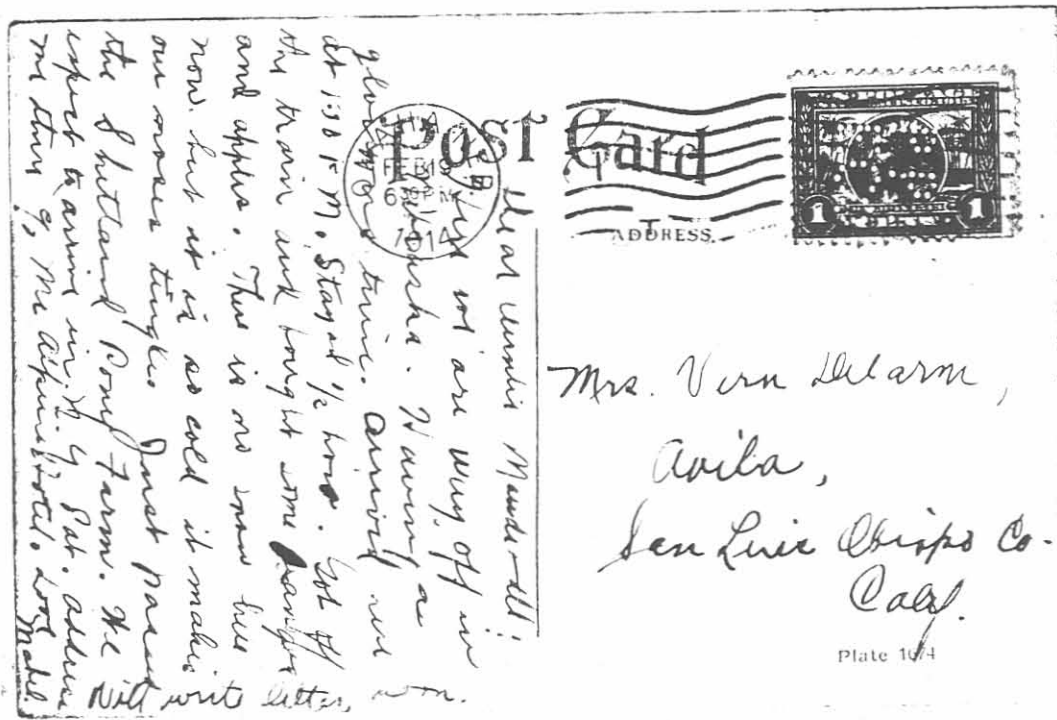 POST Card
FEB 19
6 PM
1914
ADDRESS
1
1
Mrs. Vern DeLarm,
Avila,
San Luis Obispo Co.
Calif.
Plate 1674
Dear Auntie Maude-ell:
Here we are way off in
Omaha. Having a
glorious time. Arrived here
at 130 P M. Stayed 1/2 hour. Got off
the train and bought some oranges
and apples. There is no snow here
now but it is so cold it makes
our noses tingle. Just passed
the Shetland Pony Farm. We
expect to arrive in N. Y. Sat. address
me Hotel. Love
Mabel.
Will write letter soon.